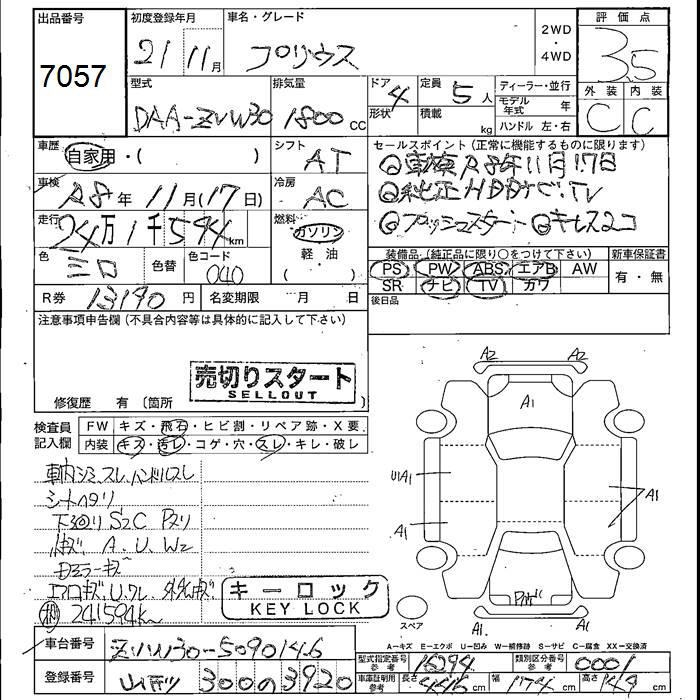 出品番号 7057
初度登録年月 21 11月
車名・グレード プリウス
2WD・4WD
評価点 3.5
外装 C 内装 C
型式 DAA-ZVW30
排気量 1800 cc
ドア 4 形状
定員 5人 積載 kg
ディーラー・並行
モデル年式 年
ハンドル 左・右
車歴 自家用・( )
シフト AT
セールスポイント(正常に機能するものに限ります)
◎車検R8年11月17日
◎純正HDDナビ・TV
◎プッシュスタート ◎キーレス2コ
車検 R8年11月(17日)
冷房 AC
走行 24万1千594km
燃料 ガソリン 軽・油
色 シロ 色替 色コード 040
装備品・(純正品に限り○をつけて下さい) 新車保証書
PS PW ABS エアB AW 有・無
SR ナビ TV カワ
R券 13190円 名変期限 月 日
後日品
注意事項申告欄(不具合内容等は具体的に記入して下さい)
売切りスタート
SELLOUT
修復歴 有 〔箇所 〕
検査員記入欄
FW キズ・飛石・ヒビ割・リペア跡・X要
内装 キズ・汚レ・コゲ・穴・スレ・キレ・破レ
車内シミ、スレ、ハンドルスレ
シートヘタリ
下廻り S2C Pヌリ
A. U. W2
ドアミラーキズ
エアロキズ、U、ワレ
241594km
キーロック
KEY LOCK
A2 A2
A1
U1A1
A1
A1
A1 A1
スペア
A-キズ E-エクボ U-凹み W-補修跡 S-サビ C-腐食 XX-交換済
車台番号 ZVW30-5090146
型式指定番号参考 16294 類別区分番号参考 0001
登録番号 300の3920
車庫証明用参考 長さ 446cm 幅 174cm 高さ 149cm